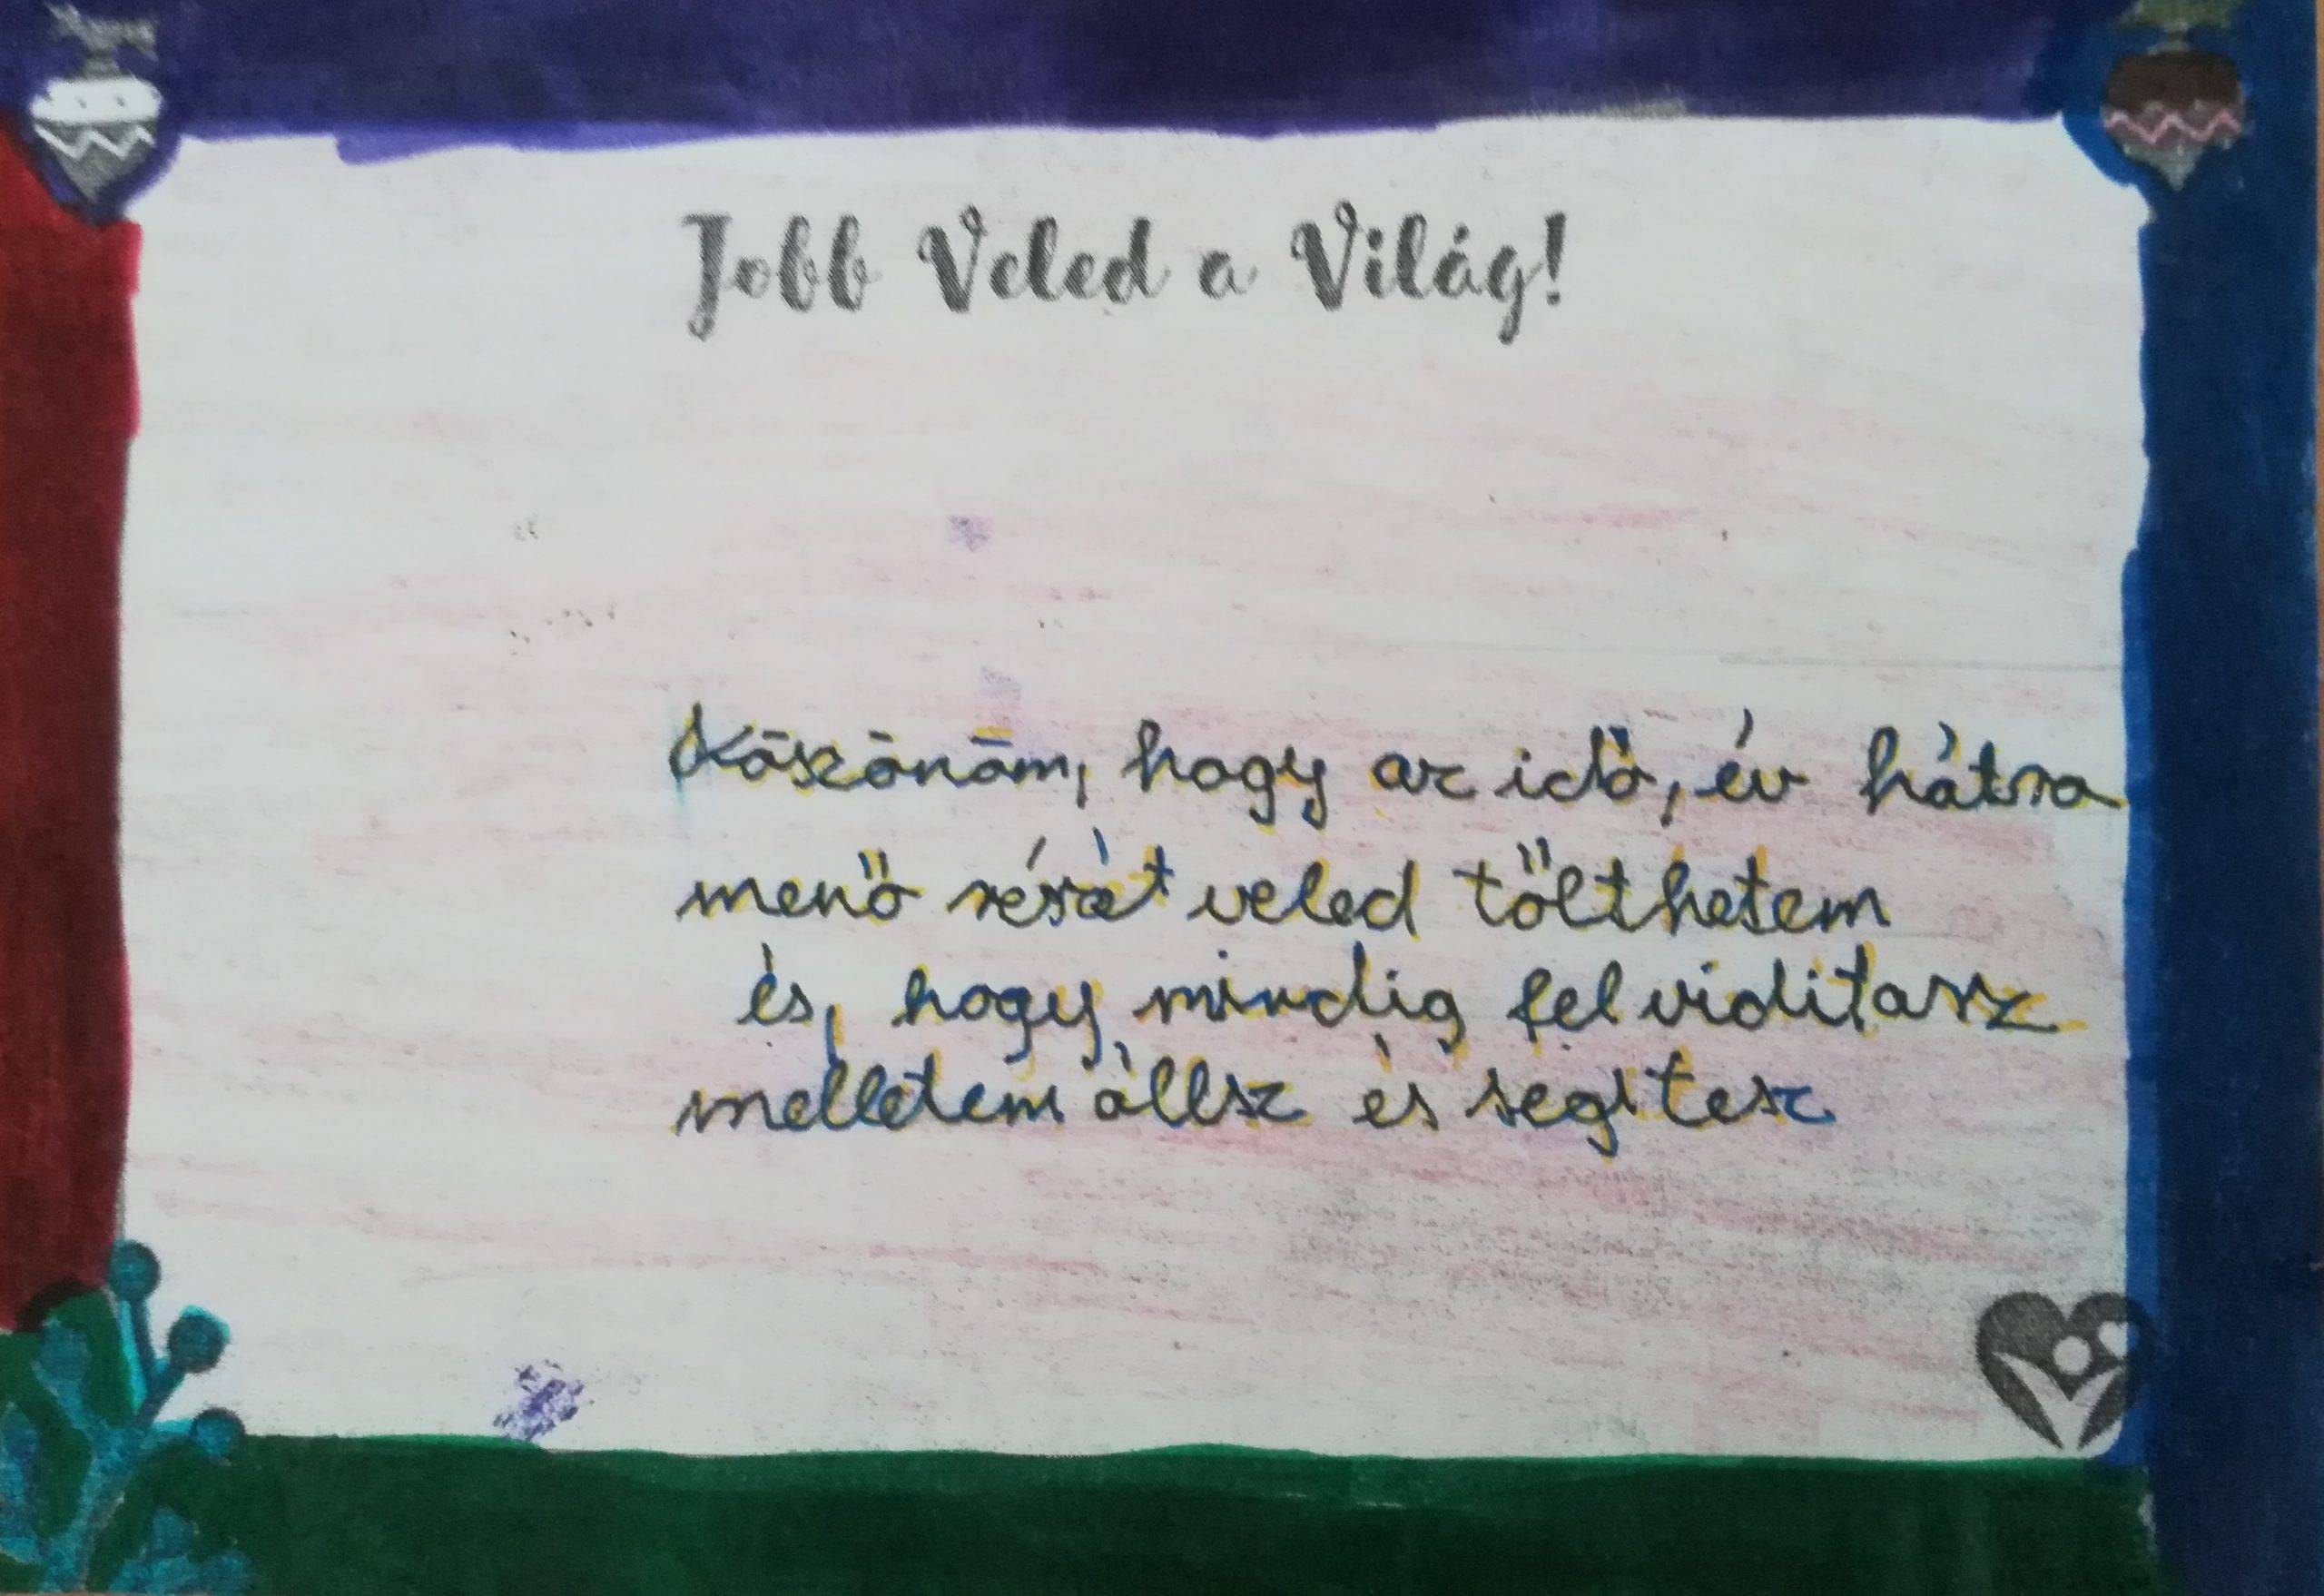 Jobb Veled a Világ!
Köszönöm, hogy az idő, év hátra
menő részét veled tölthetem
és, hogy mindig felviditasz
melletem állsz és segitesz